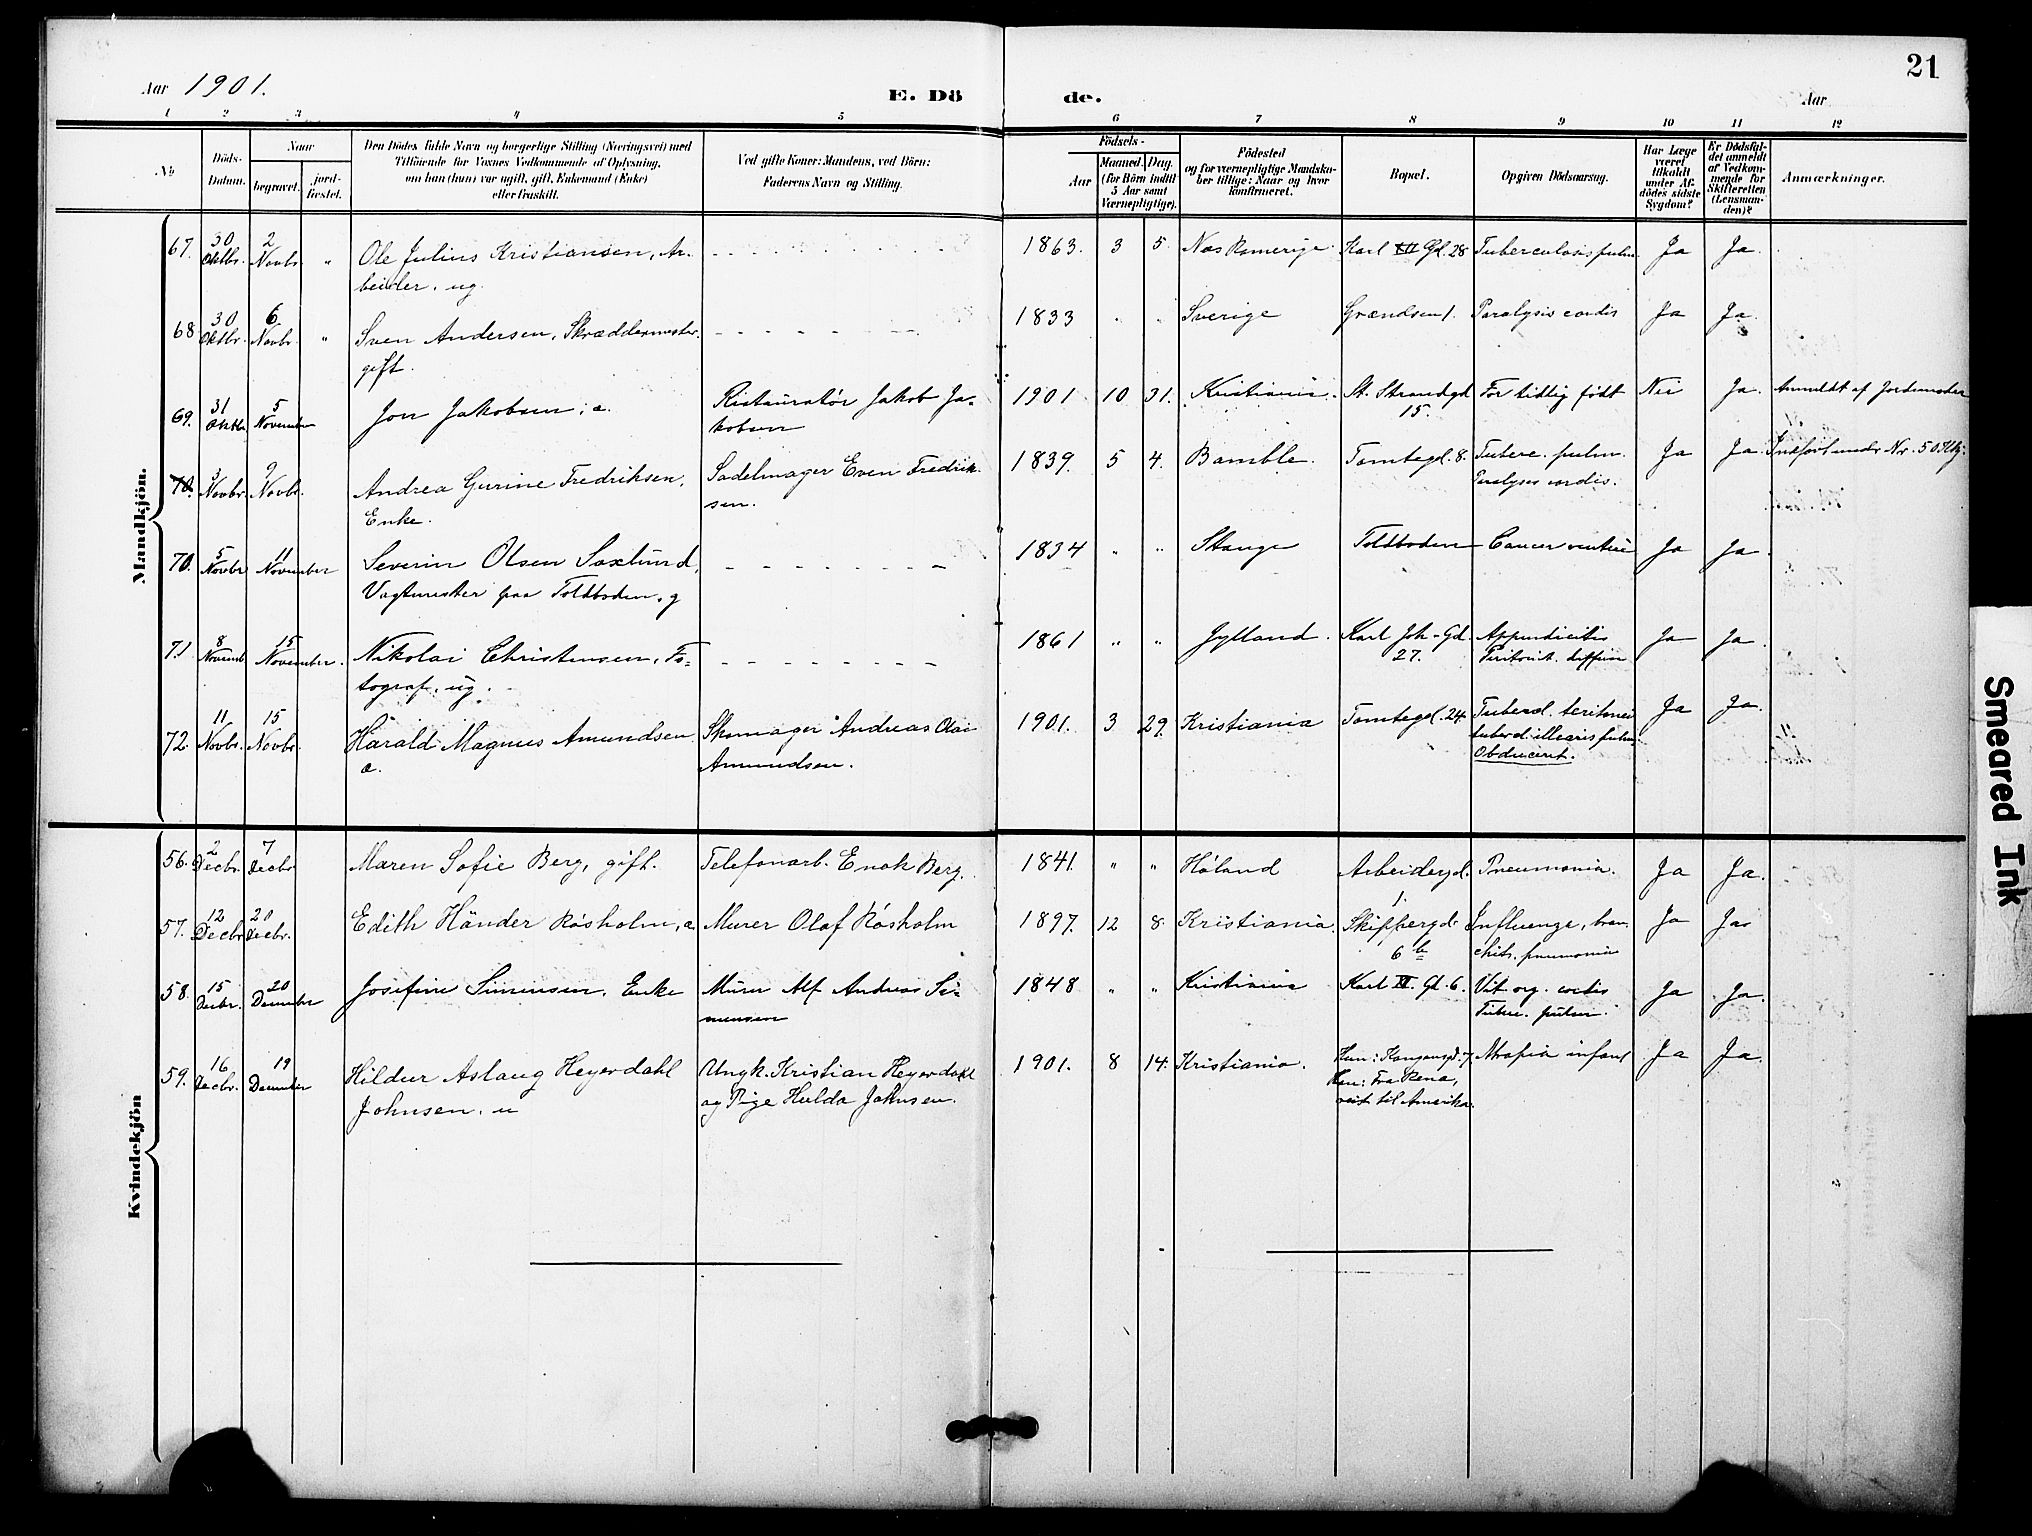 21
Aar 1901.
E. Dö de.
Aar
1 2 3 4 5 6 7 8 9 10 11 12
No
Döds-
Datum.
Naar
begravet.
jord-
fæstet.
Den Dödes fulde Navn og borgerlige Stilling (Næringsvei) med
Tilföiende for Voxnes Vedkommende af Oplysning,
om han (hun) var ugift, gift, Enkemand (Enke)
eller fraskilt.
Ved gifte Koner: Mandens, ved Börn:
Faderens Navn og Stilling.
Födsels-
Aar
Maaned. Dag.
(for Börn indtil
5 Aar samt
Værnepligtige).
Födested
og for værnepligtige Mandska-
ber tillige: Naar og hvor
konfirmeret.
Bopæl.
Opgiven Dödsaarsag.
Har Læge
været
tilkaldt
under Af-
dödes sidste
Sygdom?
Er Dödsfal-
det anmeldt
af Vedkom-
mende for
Skifteretten
(Lensman-
den)?
Anmærkninger.
Mandkjön.
67. 30 Oktbr. 2 Novbr. " Ole Julius Kristiansen, Ar- 1863. 3 5. Nes Romerige Karl XII Gd. 28 Tuberculosis pulm. Ja Ja.
beider. ug.
68 30 Oktbr. 6 Novbr. " Sven Andersen, Skræddermester. 1833 " " Sverige Grændsen 1. Paralysis cordis Ja Ja.
gift.
69. 31 Oktbr. 5 November Jon Jakobsen, e. Ristauratør Jakob Ja- 1901 10 31. Kristiania. St. Strandgd For tidlig født Nei Ja. Anmeldt af Jordemoder
kobsen 15.
70. 3 Novbr. 9 Novbr. Andrea Gurine Fredriksen, Sadelmager Even Fredrik- 1839. 5 4. Bamble. Tomtegd. 8. Tuberc. pulm. Ja Ja. Indført under Nr. 50 Kvkj.
Enke. sen. Paralysis cordis.
70. 5 Novbr. 11 November Severin Olsen Saxlund, 1834 " " Stange Toldboden Cancer ventric. Ja Ja.
Vagtmester paa Toldboden. g
71. 8 Novemb. 15 November. Nikolai Christensen, Fo- 1861 " " Jylland. Karl Joh-Gd. Appendicitis Ja Ja.
tograf. ug. 27. Peritonit. diffusa
72. 11 Novbr. 15 Novbr. Harald Magnus Amundsen Skomager Andreas Olai 1901. 3 29. Kristiania Tomtegd. 24. Ja Ja.
e. Amundsen.
Obduceret.
Kvindekjön
56. 2 Decbr. 7 Decbr. Maren Sofie Berg, gift. Telefonarb. Enok Berg. 1841. " " Høland Arbeidergd. Pneumonia. Ja Ja.
1.
57. 12 Decbr. 20 Decbr. Edith Händer Røsholm, e Murer Olaf Røsholm 1897. 12 8. Kristiania. Skippergd. Influenza, bron- Ja Ja.
6 b chit. pneumonia
58. 15 Decbr. 20 December Josefine Simensen, Enke Murer Alf Andreas Si- 1848 " " Kristiania Karl XII Gd. 6. Vit. org. cordis Ja Ja.
mensen Tuberc. pulm.
59. 16 Decbr. 19 December Hildur Aslaug Heyerdahl Ungk. Kristian Heyerdahl 1901. 8 14. Kristiania. Atrofia infant Ja Ja.
Johnsen. u og Pige Hulda Johnsen. Fra Rena,
reist til Amerika.
Smeared Ink